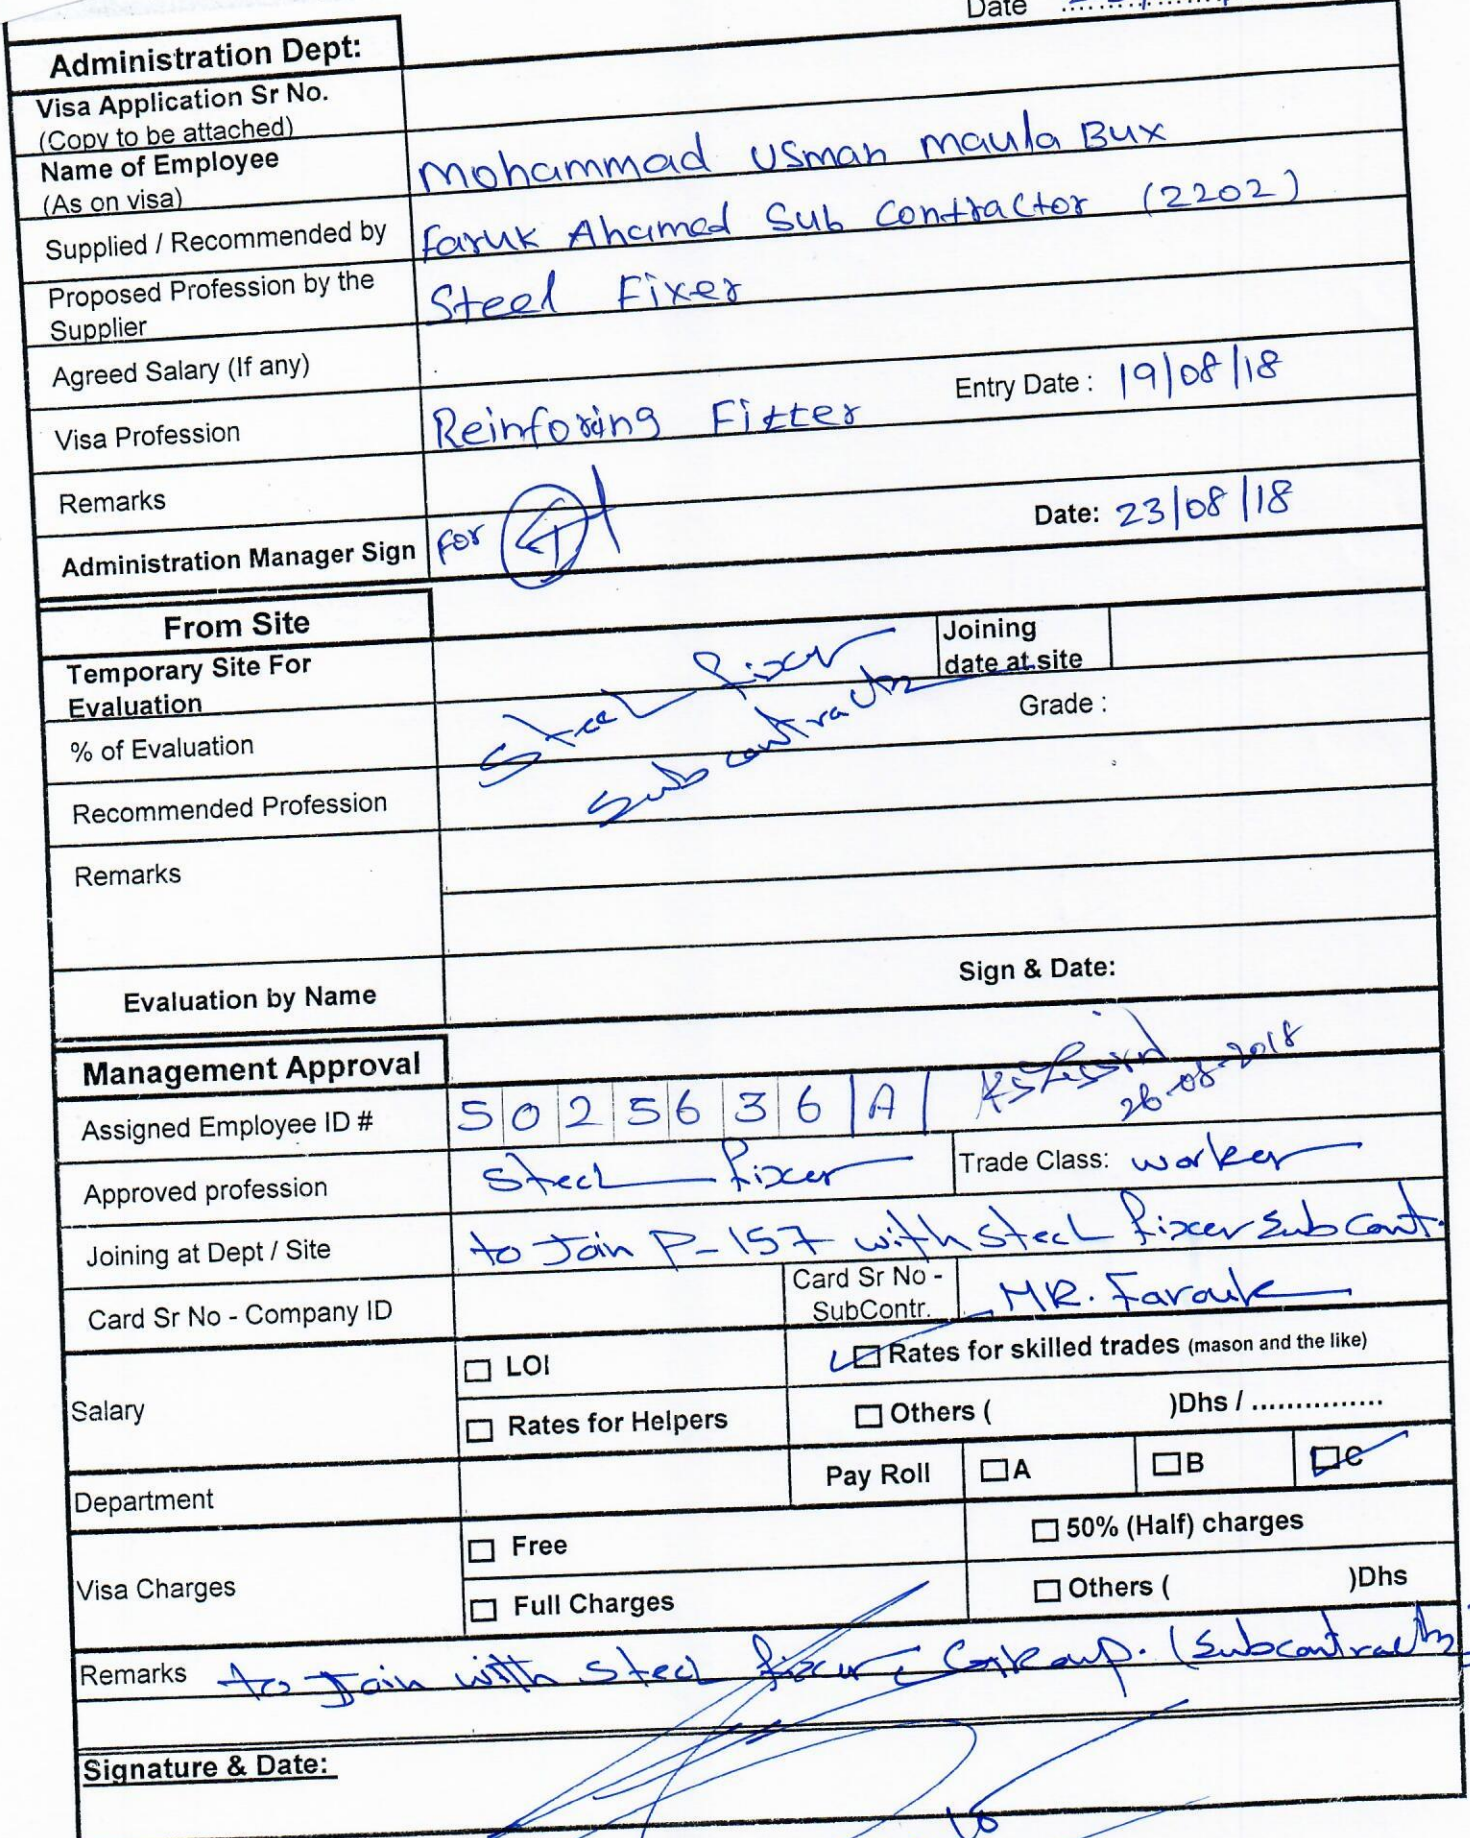 Date
Administration Dept:
Visa Application Sr No.
(Copy to be attached)
Name of Employee
(As on visa)
Mohammad Usman Maula Bux
Supplied / Recommended by
Faruk Ahamed Sub Contractor (2202)
Proposed Profession by the
Supplier
Steel Fixer
Agreed Salary (If any)
Visa Profession
Reinforing Fitter
Entry Date : 19/08/18
Remarks
Administration Manager Sign
For
Date: 23/08/18
From Site
Temporary Site For
Evaluation
Steel fixer
Subcontractor
Joining
date at site
% of Evaluation
Grade :
Recommended Profession
Remarks
Evaluation by Name
Sign & Date:
Management Approval
Assigned Employee ID #
5025636 A
26-08-2018
Approved profession
Steel fixer
Trade Class: worker
Joining at Dept / Site
to Join P-157 with Steel fixer Sub cont.
Card Sr No - Company ID
Card Sr No -
SubContr.
MR. Farouk
Salary
LOI
Rates for skilled trades (mason and the like)
Rates for Helpers
Others ( )Dhs / ...............
Department
Pay Roll
A
B
C
Visa Charges
Free
50% (Half) charges
Full Charges
Others ( )Dhs
Remarks
to Join with Steel fixer Group. (Subcontractor)
Signature & Date: